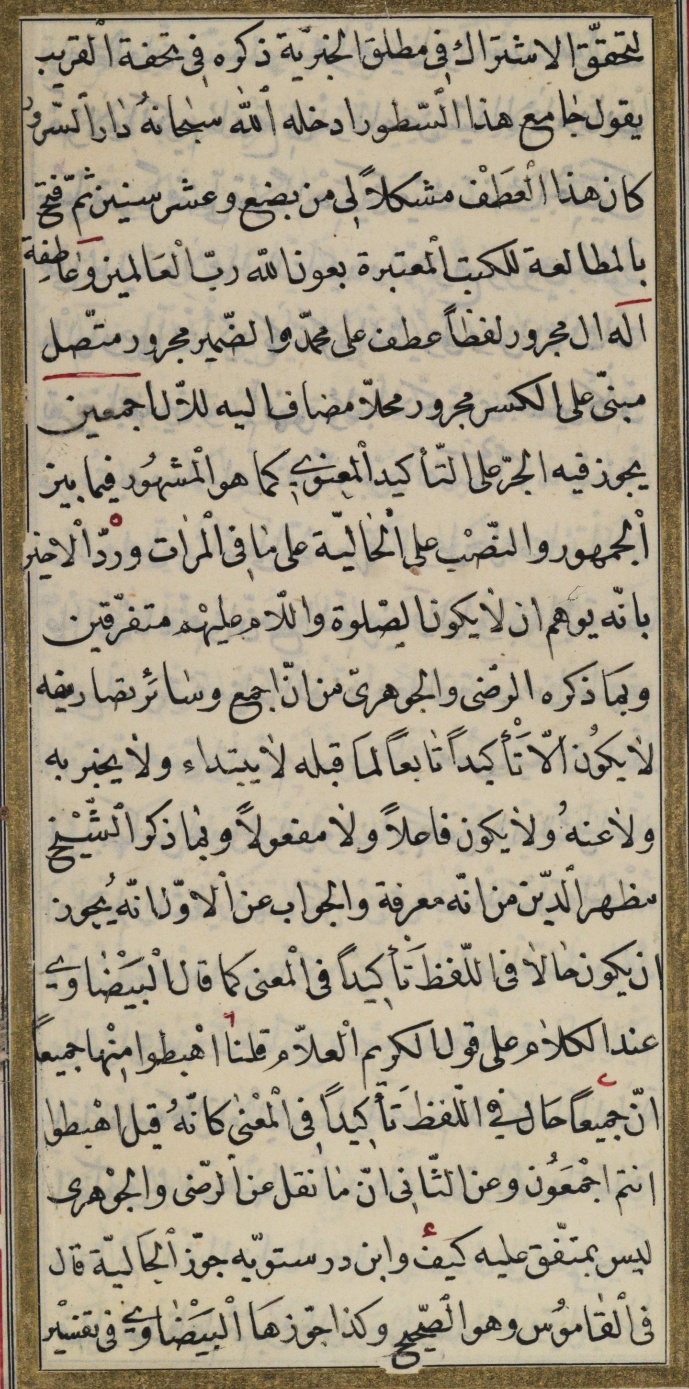 لتحقّق الاشتراك فى مطلق الخبريّة ذكره فى تحفة الْقريب
يقول جامع هذا السّطور ادخله اللّٰه سبحانهُ دار السّرور
كان هذا الْعَطْف مشكلاً لى من بضع وعشر سنين ثمّ فتح
بالمطالعة للكتب الْمعتبرة بعون اللّه ربّ الْعَالمين وعاطفة
اله ال مجرور لفظاً عطف على محمّد والضّمير مجرور متّصل
مبنىّ على الكسر مجرور محلاّ مضاف اليه للآل اجمعين
يجوز فيه الجرّ على التّأكيد الْمعنوي كما هو الْمشهُور فيما بين
الْجمهور والنصْب على الْحاليّة على ما فى الْمرات وردّ الاخير
بانّه يوهم ان لا يكون الصّلوة والسّلام عليهم متفرّقين
وبما ذكره الرضى والجوهرىّ من انّ اجمع وسائر تصاريفه
لا يكوُن الاّ تَأْكيداً تابعاً لما قبله لا يبتداء ولا يخبر به
ولا عنهُ ولا يكون فاعلاً ولا مفعولاً وبما ذكر الشّيْخ
مظهر الّدين من انّه معرفة والجواب عن الاوّل انّه يُجوز
ان يكون حالا فى اللّفظ تَأكيداً فى الْمعنى كما قال الْبَيْضاوي
عند الكلام على قول الكريم الْعلاّم قلنا اهْبطوا مِنْها جميعاً
انّ جميعاً حال في اللّفظ تَأكيداً فى الْمَعْنى كانّهُ قيل اهْبطوا
انتم اجْمَعُون وعن الثّانى انّ ما نقل عن الرّضى والجوْهرى
ليس بمتّفق عليه كيف وابن درستويّه جوّز الحاليّة قال
فى القامُوس وهو الصّحيح وكذا جوّزها الْبَيْضاوي فى تفسيْر